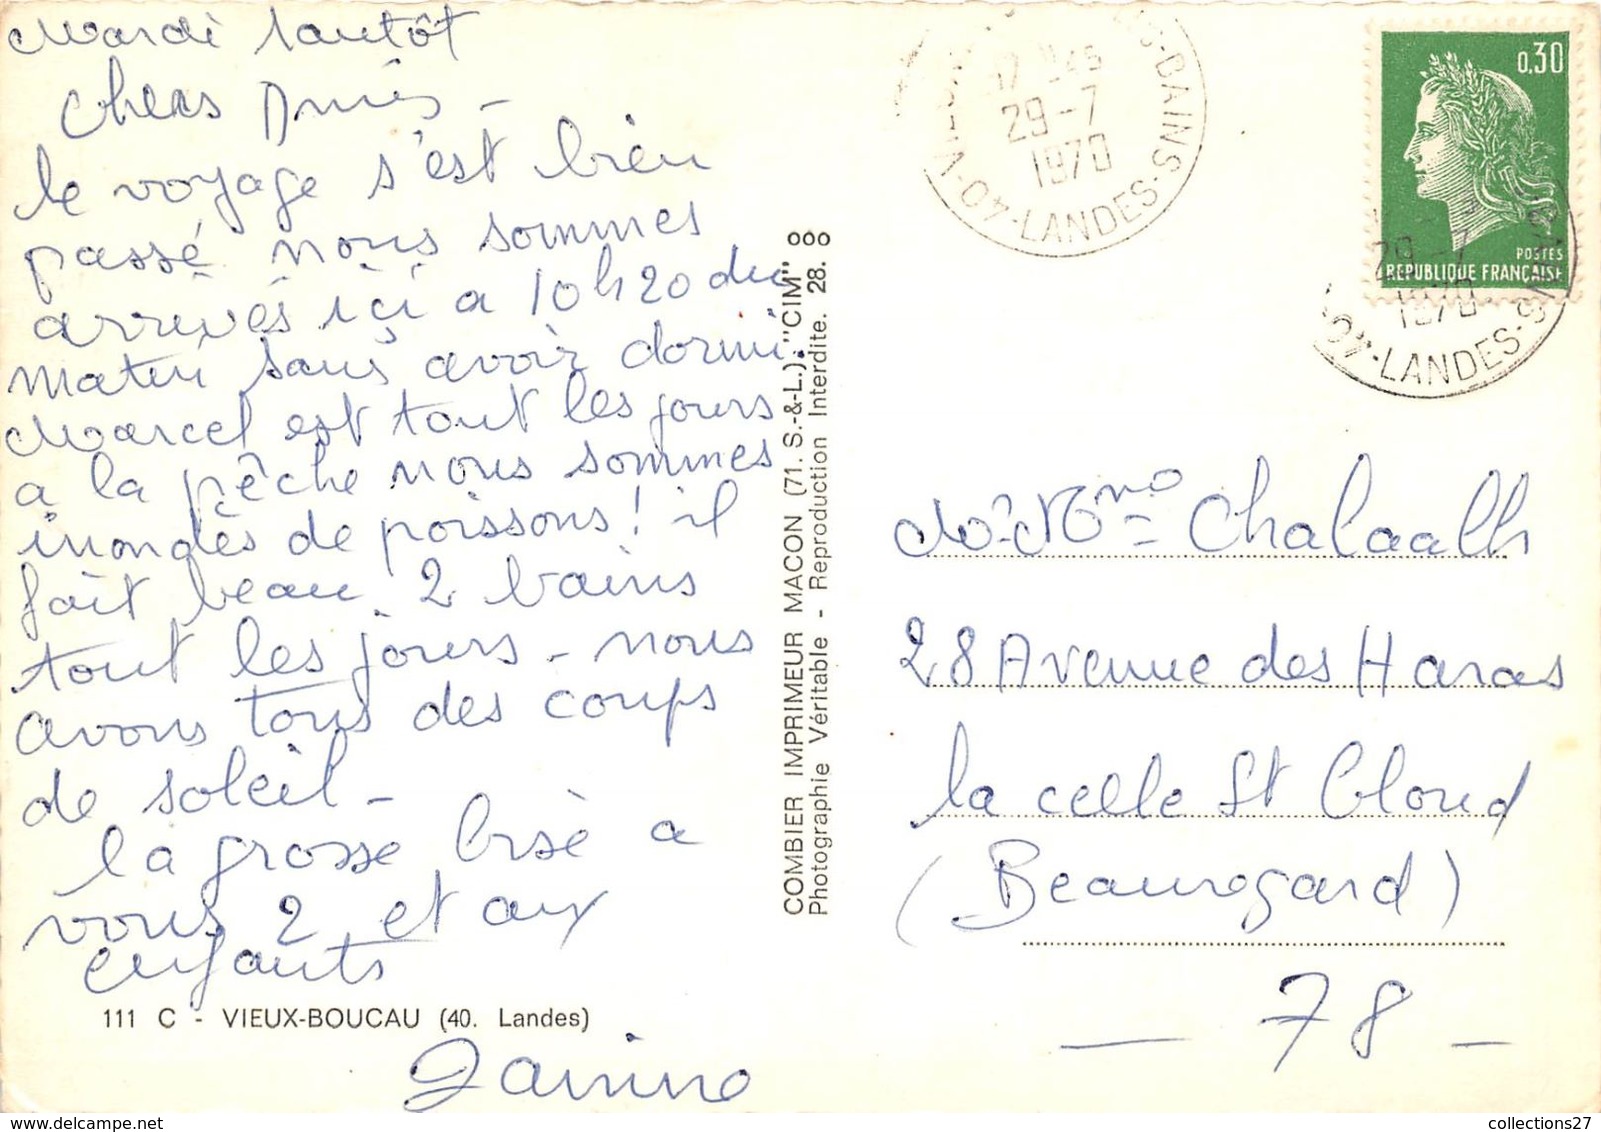 Mardi tantôt
Chers Amis -
le voyage s'est bien
passé nous sommes
arrivés içi a 10h20 du
matin sans avoir dormi.
Marcel est tout les jours
a la pêche nous sommes
inondés de poissons ! il
fait beau 2 bains
tout les jours - nous
avons tous des coups
de soleil -
la grosse bisè a
vous 2 et aux
enfants
111 C - VIEUX-BOUCAU (40. Landes)
Janine
COMBIER IMPRIMEUR MACON (71. S.-&-L.). "CIM"
Photographie Véritable - Reproduction Interdite. 28. 000
29-7
1970
40-LANDES
S-BAINS
0,30
POSTES
REPUBLIQUE FRANÇAISE
29-7
1970
40-LANDES-S
Mr Mme Chalaalh
28 Avenue des Haras
la celle St Cloud
(Beauregard)
- 78 -
collections27